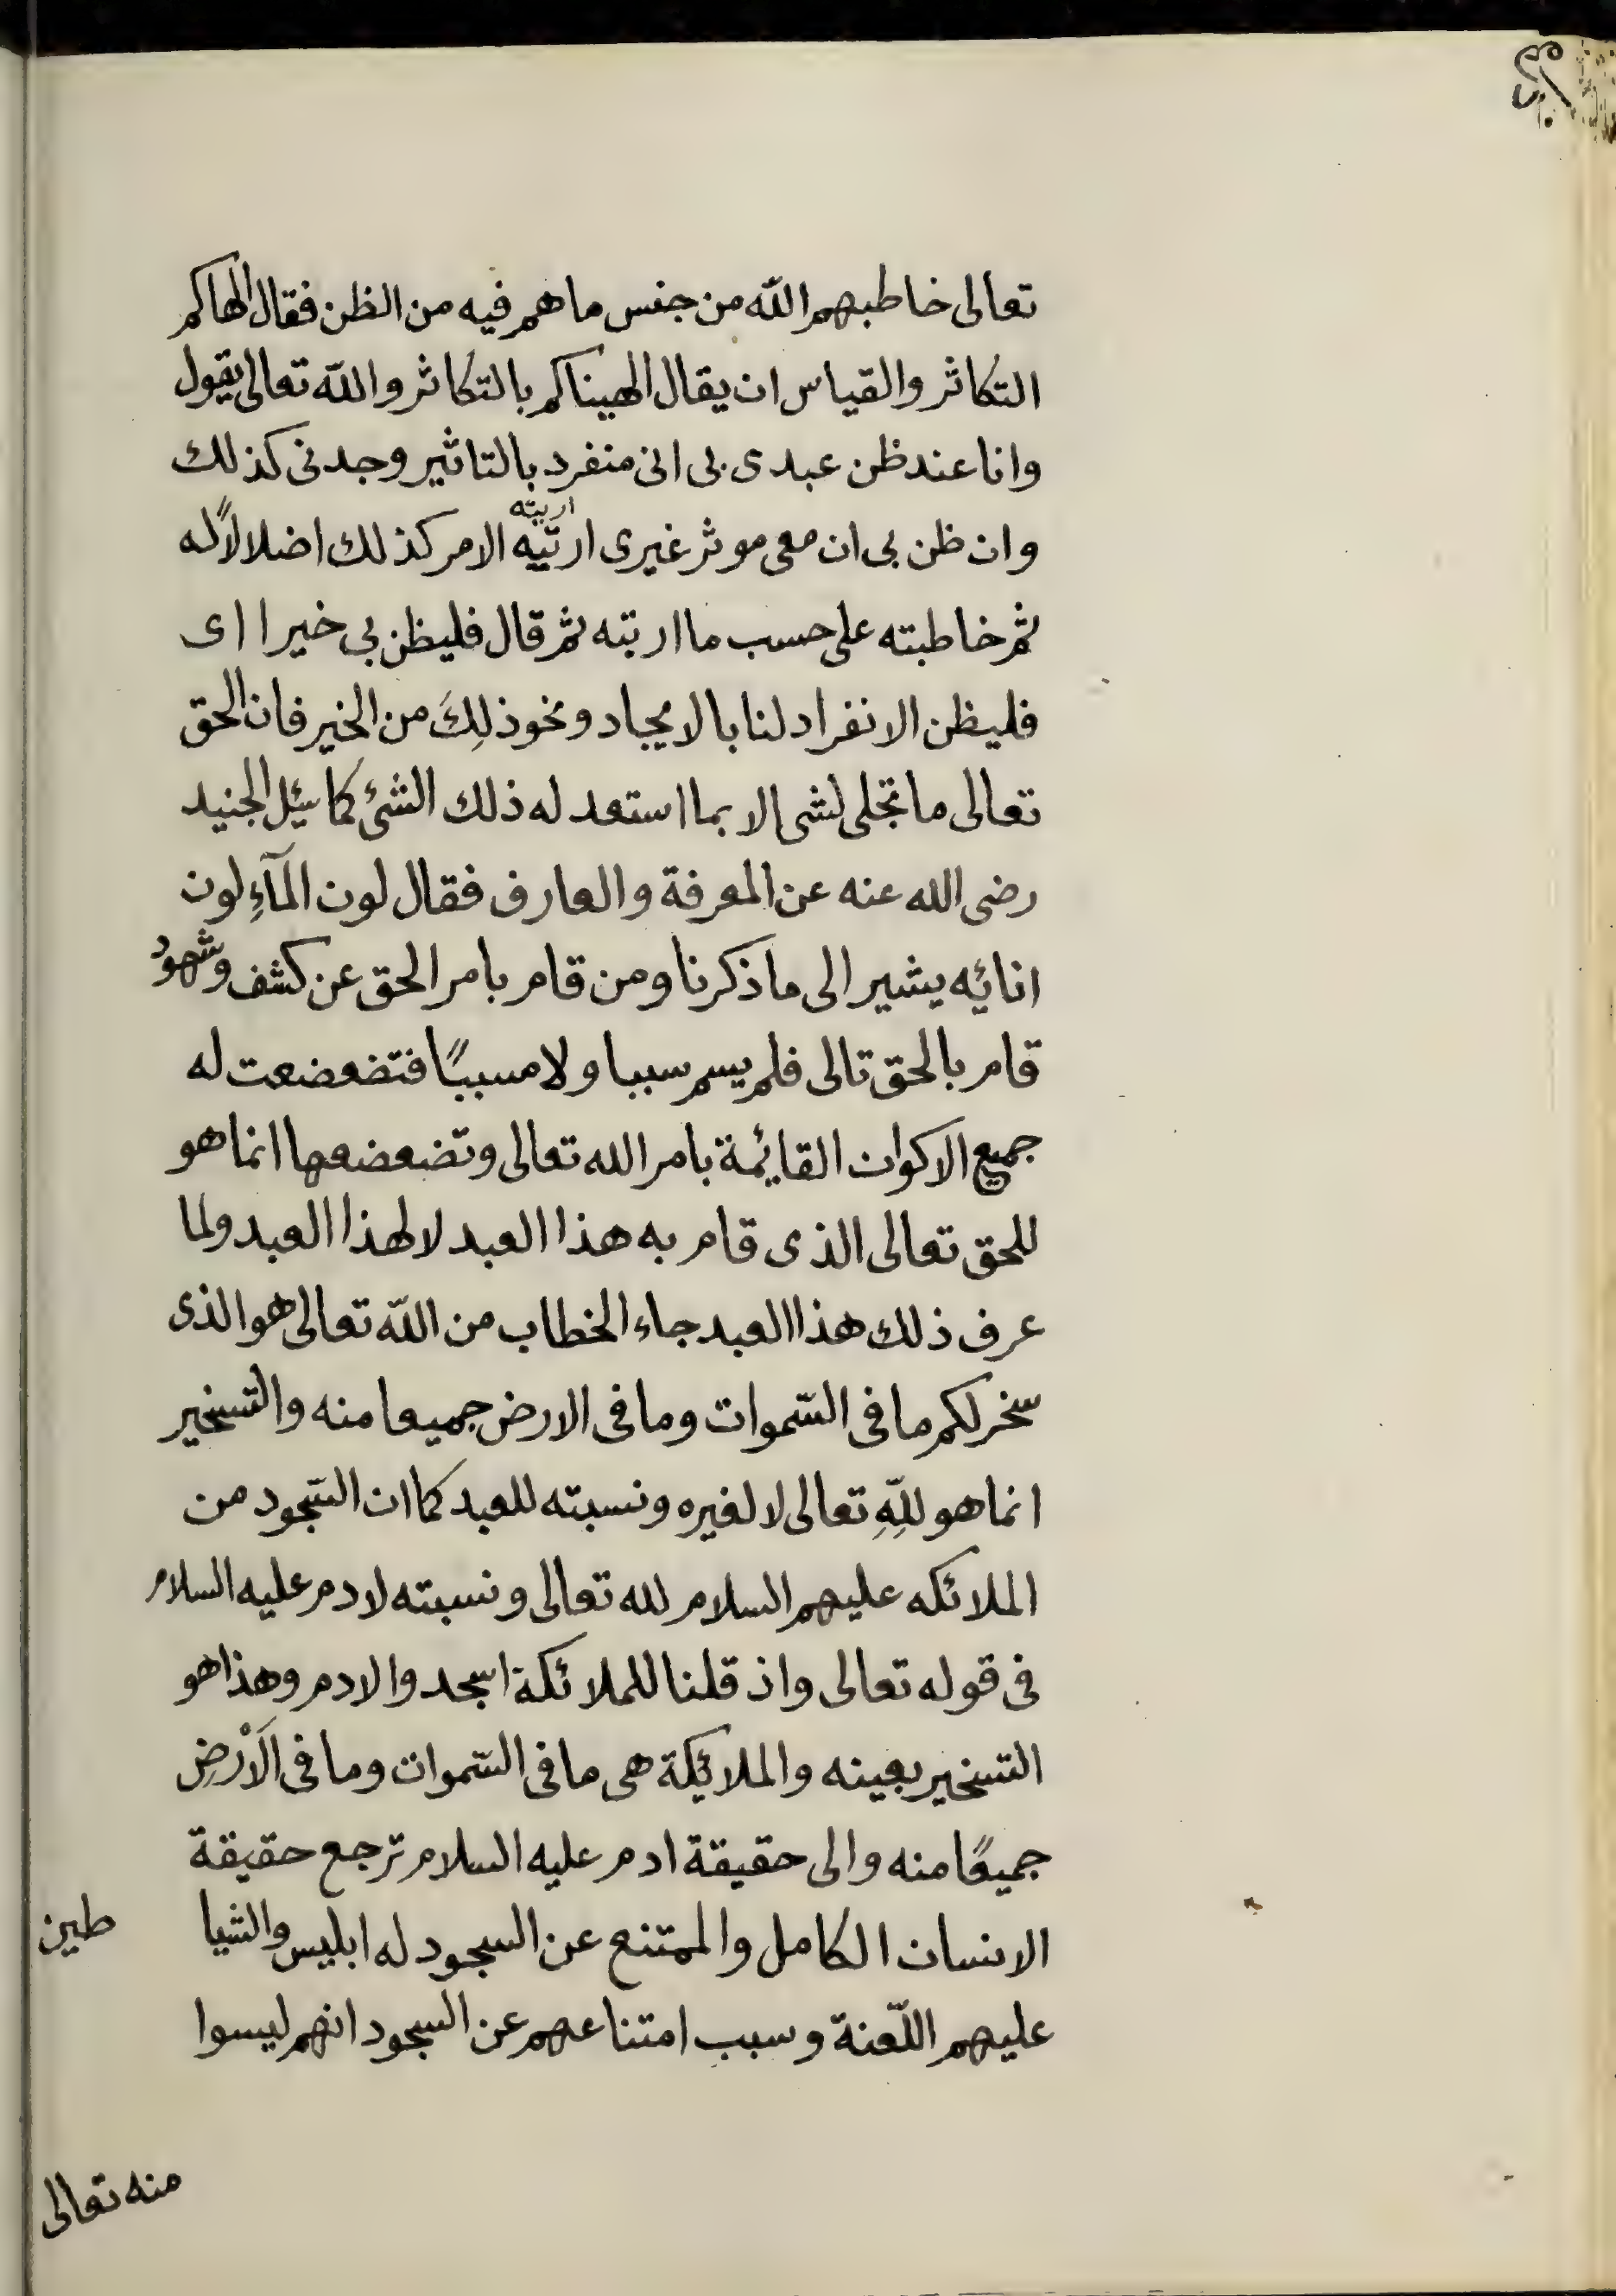 تعالى خاطبهم اللّه من جنس ما هم فيه من الظن فقال الهاكم
التكاثر والقياس ان يقال الهيناكم بالتكاثر واللّه تعالى يقول
وانا عند ظن عبدى بى انى منفرد بالتاثير وجدنى كذلك
اربيّه
وان ظن بى ان معى موثر غيرى ارتيّه الامر كذلك اضلالاً له
ثم خاطبته على حسب ما اربته ثم قال فليظن بى خيرا اى
فليظن الانفراد لنا بالايجاد ونحوذلِكَ من الخير فان الحق
تعالى ما تجلى لشى الا بما استعد له ذلك الشئ كما سُئِل الجنيد
رضى الله عنه عن المعرفة والعارف فقال لون المآءِ لون
انائه يشير الى ما ذكرنا ومن قام بامر الحق عن كشف وشهودٍ
قام بالحق تالى فلم يسم سببا ولا مسببًا فتضعضعت له
جميع الاكوان القائمة بامر الله تعالى وتضعضعها انما هو
للحق تعالى الذى قام به هذا العبد لا لهذا العبد ولما
عرف ذلك هذا العبد جاء الخطاب من اللّه تعالى هو الذى
سخر لكم ما فى السّموات وما فى الارض جميعا منه والتسخير
انما هو للّهِ تعالى لا لغيره ونسبته للعبد كما ان السّجود من
الملائكه عليهم السلام لله تعالى ونسبته لادم عليه السلام
فى قوله تعالى واذ قلنا للملائكة اسجدوا لادم وهذا هو
التسخير بعينه والملائكة هى ما فى السّموات وما فى الَارْضِ
جميعًا منه والى حقيقة ادم عليه السلام ترجع حقيقة
الانسان الكامل والممتنع عن السجود له ابليس والشيا طين
عليهم اللّعنة وسبب امتناعهم عن السجود انهم ليسوا
منه تعالى